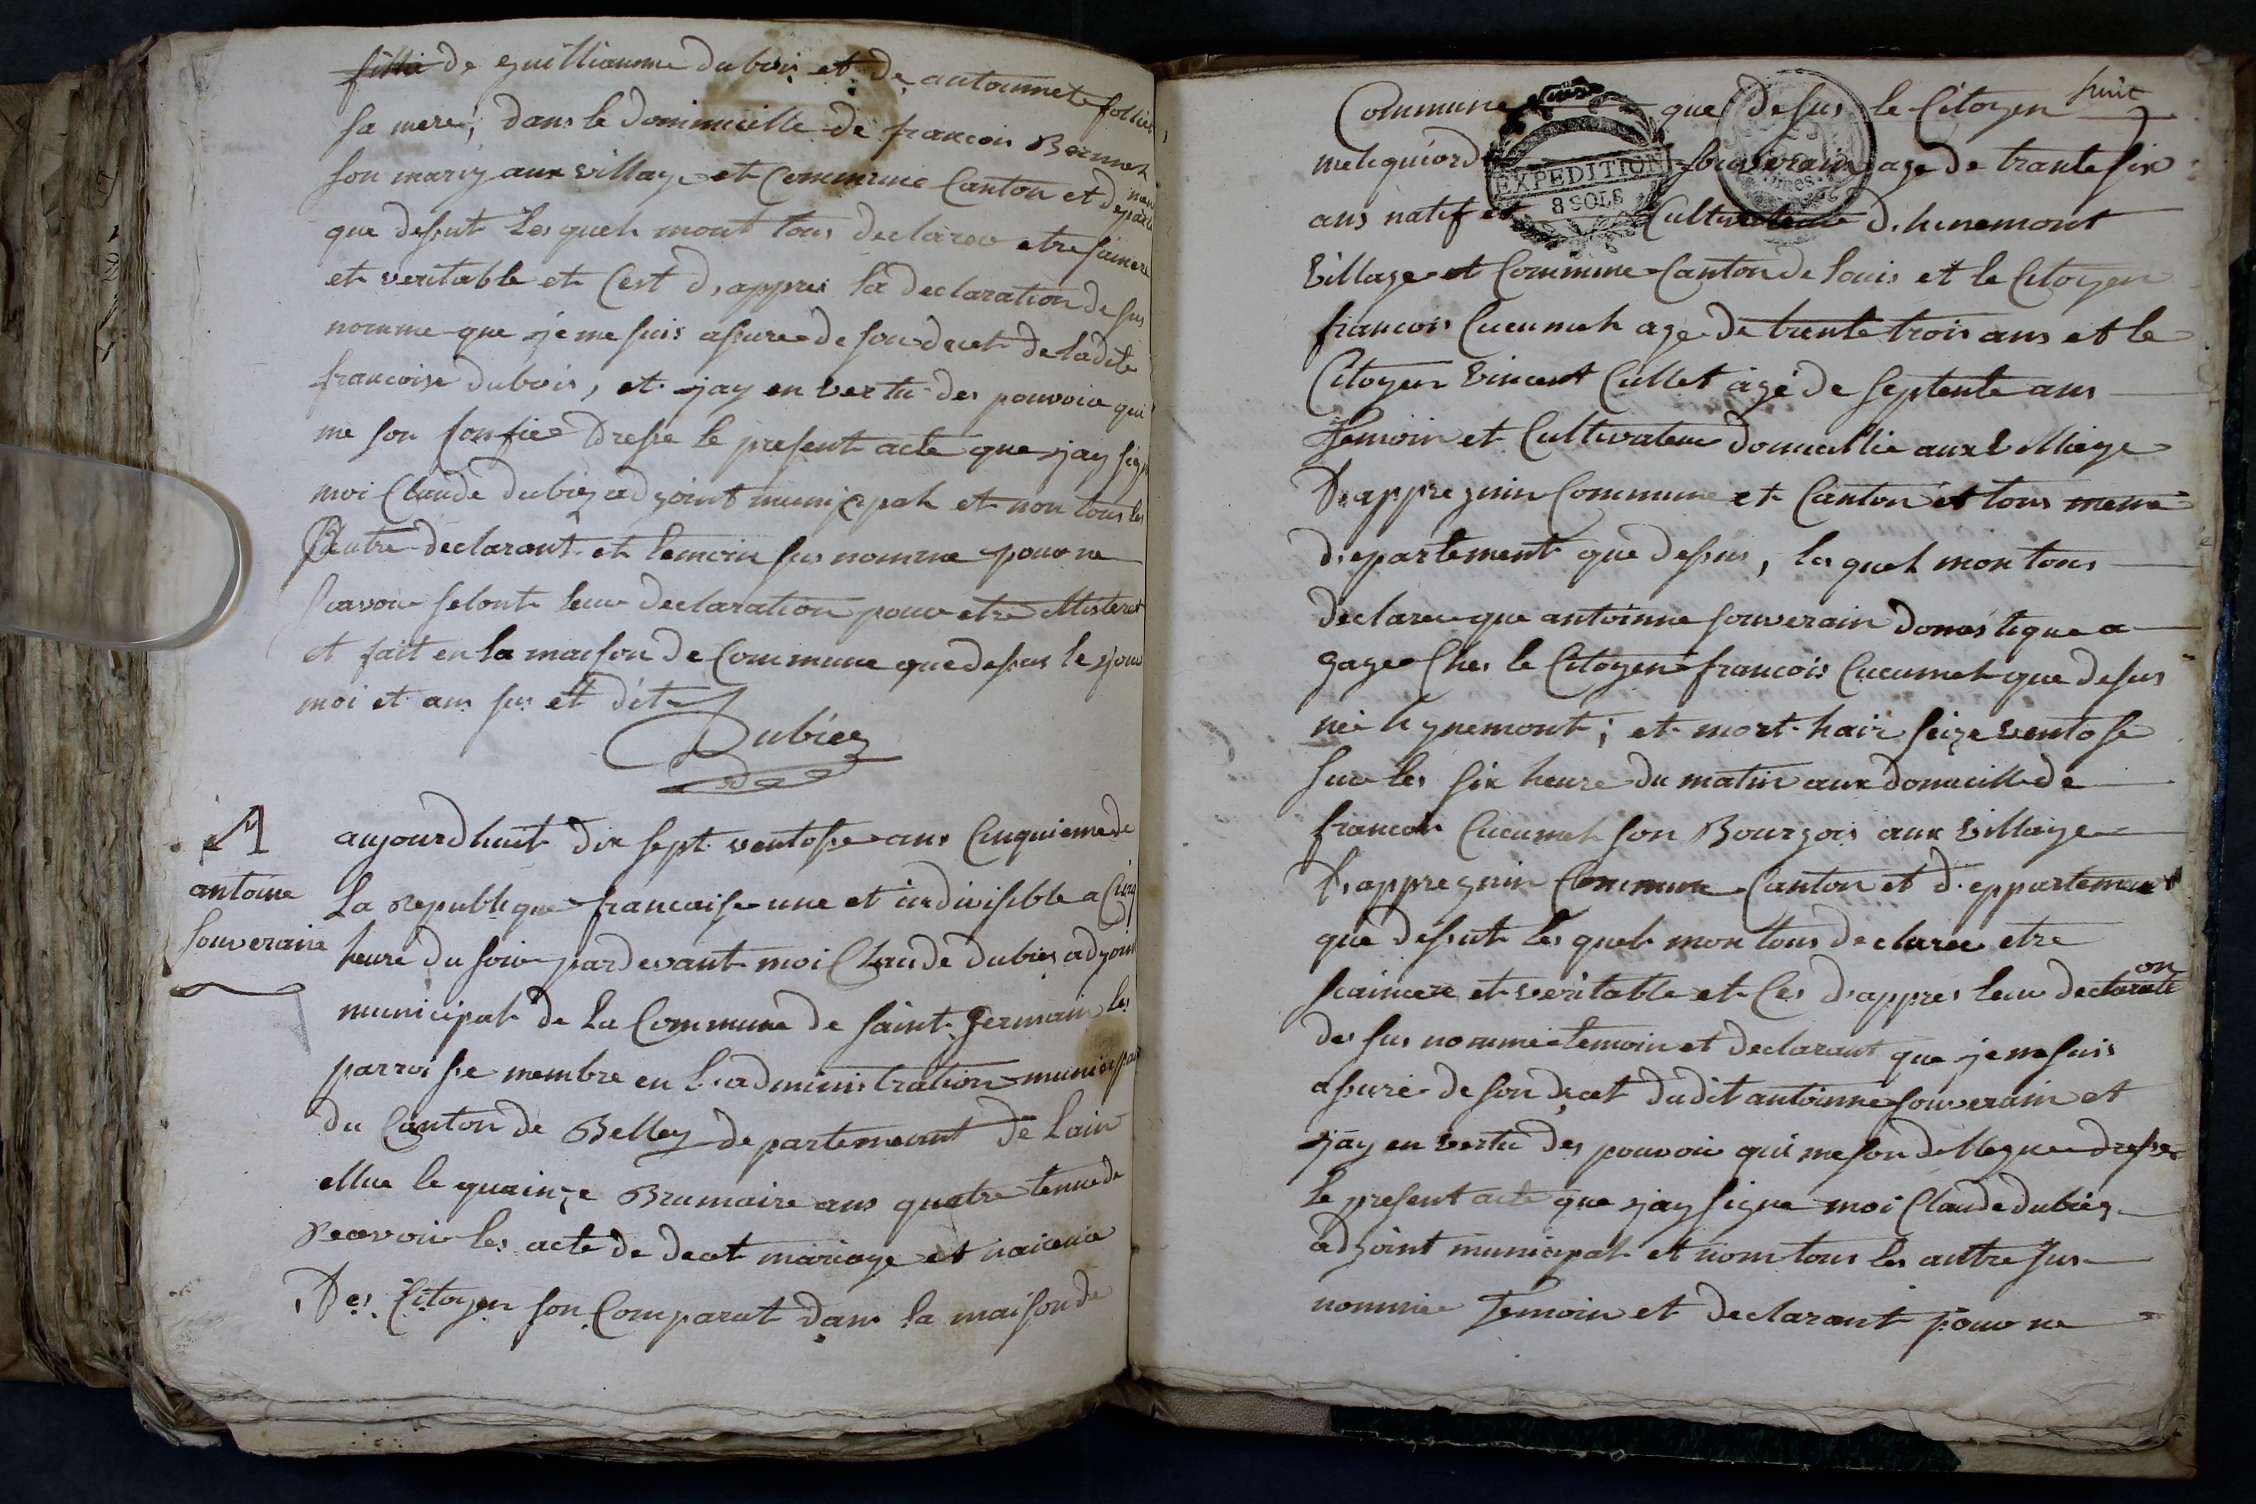 fillie de guilliaumme dubois et de antoinnete follliet
sa mere, dans le dominicille de francois Bormet
son mariy aux village et Commune Canton et departe
ment
que desut les quels mont tous declaree etre saincere
et veritable et Cest d,appres la declaration de sus
nomme que je me suis assuree de son decet de ladite
francoise dubois, et jay en vertu des pouvoir qui
me son Confiee dresse le present acte que jay signe
moi Claude dubiez adjoint municipah et non tous les
autre declarant et temoin sus nomme pour ne
scavoir selont leur declaration pour etre
et fait en la maison de Commune que desus le jour
moi et ans sus et dit
Dubiez
antoine
souverain
aujourdhuit dix sept ventosse ans Cinquieme de
La Republique francaise une et indivisible a Cinq
heure du soir pardevant moi Claude dubiez adjoint
municipah de La Commune de saint germain les
parroisse membre en L,administration municipah
du Canton de Belley departemennt de Lain
ellue le quainze Brumaire ans quatre tenue de
Recevoir les acte de decet mariage et naicence
Des Citoyen son Comparut dans la maison de
huit
Commune que desus le Citoyen
EXPEDITION
8 SOLS
souverain age de trante six
ans natif et Cultivateur d,hinnemont
village et Commune Canton de Louis et le Citoyen
francois Cucumeh age de trente trois ans et le
Citoyen vincent Cullet agé de septente ans
Temoin et Cultivateur domicillie aux village
D,appregnin Commune et Canton et tous meme
d,epartement que desus, les queh mon tous
declaree que antoinne souverain domestique a
gage Ches le Citoyen francois Cucumeh que desus
née hynemont; et mort hair seize ventosse
sur les six heure du matin aux domicille de
francois Cucumeh son Bourgois aux village
D,appregnin Commune Canton et d,eppartement
que desut les queh mon tous declaree etre
scaincere et veritable et Ces d,appres leur declarati
on
de sus nommée temoin et declarant que je me suis
assurée de son decet dudit antoinne souverain et
jay en vertu des pouvoir qui me son dellegue dresse
le present acte que jay signe moi Claude dubiez
adjoint municipah et nom tous les auttre sus
nommée Temoin et declarant pour ne